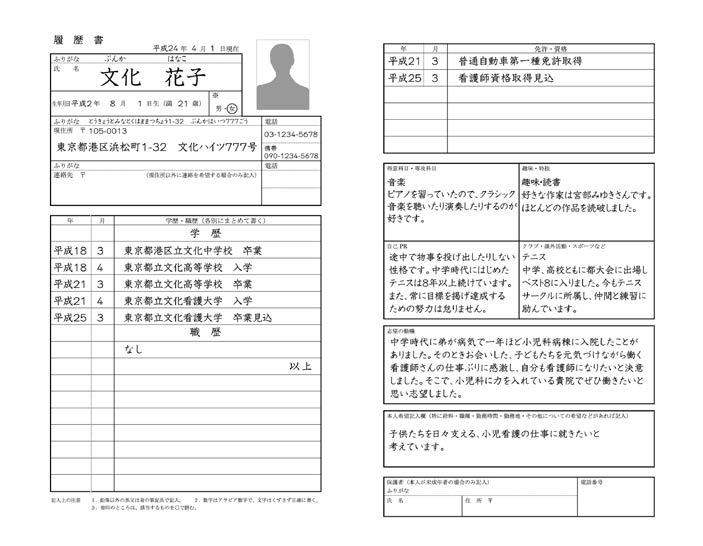 履歴書
平成24年 4月 1日現在
ふりがな ぶんか はなこ
氏名 文化 花子
生年月日 平成2年 8月 1日生（満 21歳）
※
男・女
ふりがな とうきょうとみなとくはままつちょう1-32 ぶんかはいつ777ごう
現住所 〒105-0013
東京都港区浜松町1-32 文化ハイツ777号
電話
03-1234-5678
携帯
090-1234-5678
ふりがな
連絡先 〒 （現住所以外に連絡を希望する場合のみ記入）
電話
年 月 学歴・職歴（各別にまとめて書く）
学 歴
平成18 3 東京都港区立文化中学校 卒業
平成18 4 東京都立文化高等学校 入学
平成21 3 東京都立文化高等学校 卒業
平成21 4 東京都立文化看護大学 入学
平成25 3 東京都立文化看護大学 卒業見込
職 歴
なし
以上
記入上の注意 1．鉛筆以外の黒又は青の筆記具で記入。 2．数字はアラビア数字で、文字はくずさず正確に書く。
3．※印のところは、該当するものを○で囲む。
年 月 免許・資格
平成21 3 普通自動車第一種免許取得
平成25 3 看護師資格取得見込
得意科目・専攻科目
音楽
ピアノを習っていたので、クラシック
音楽を聴いたり演奏したりするのが
好きです。
趣味・特技
趣味・読書
好きな作家は宮部みゆきさんです。
ほとんどの作品を読破しました。
自己PR
途中で物事を投げ出したりしない
性格です。中学時代にはじめた
テニスは8年以上続けています。
また、常に目標を掲げ達成する
ための努力は怠りません。
クラブ・課外活動・スポーツなど
テニス
中学、高校ともに都大会に出場し
ベスト8に入りました。今もテニス
サークルに所属し、仲間と練習に
励んでいます。
志望の動機
中学時代に弟が病気で一年ほど小児科病棟に入院したことが
ありました。そのときお会いした、子どもたちを元気づけながら働く
看護師さんの仕事ぶりに感激し、自分も看護師になりたいと決意
しました。そこで、小児科に力を入れている貴院でぜひ働きたいと
思い志望しました。
本人希望記入欄（特に給料・職種・勤務時間・勤務地・その他についての希望などがあれば記入）
子供たちを日々支える、小児看護の仕事に就きたいと
考えています。
保護者（本人が未成年者の場合のみ記入）
ふりがな
氏 名 住 所 〒
電話番号